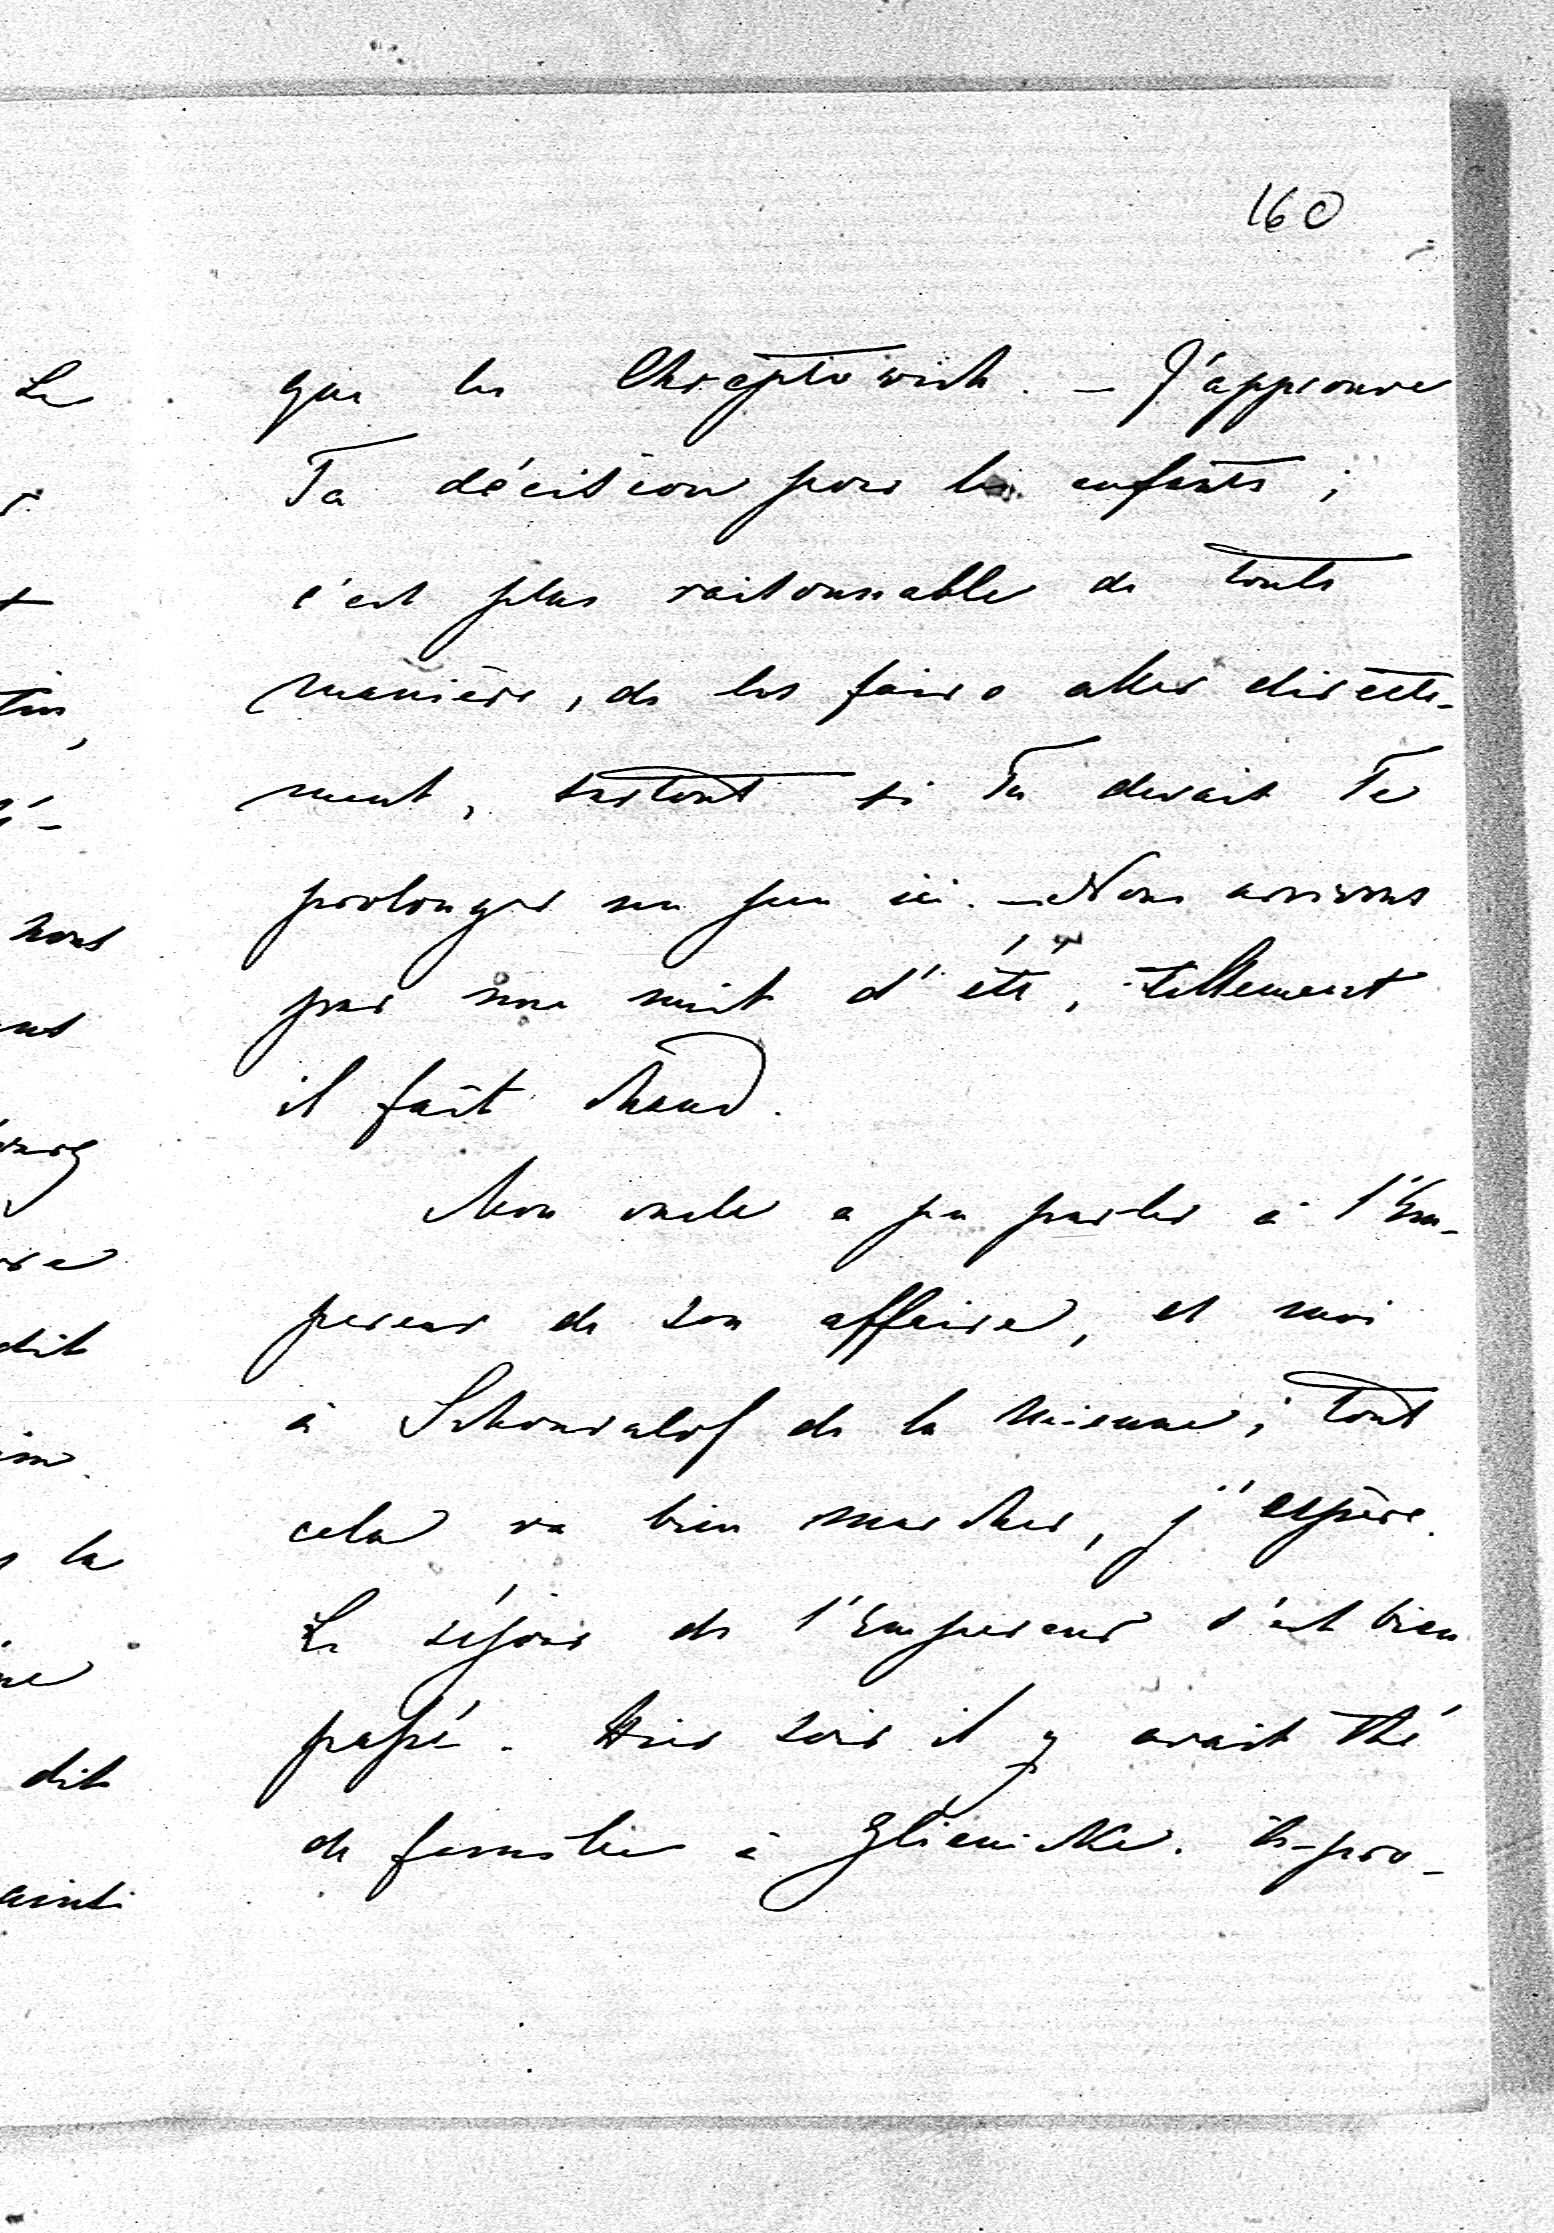 160
que les Chreptowich. – J'approuve
Ta décision pour les enfants ;
c'est plus raisonnable de toute
manière, de les faire aller directe-
ment, surtout si Tu devais Te
prolonger un peu ici. – Nous arrivons
par une nuit d'été, tellement
il fait chaud.
Mon oncle a pu parler à l'Em-
pereur de son affaire, et moi
à Schouvalof de la mienne ; tout
cela va bien marcher, j'espère.
Le séjour de l'Empereur s'est bien
passé. Hier soir il y avait thé
de famille à Glienicke.